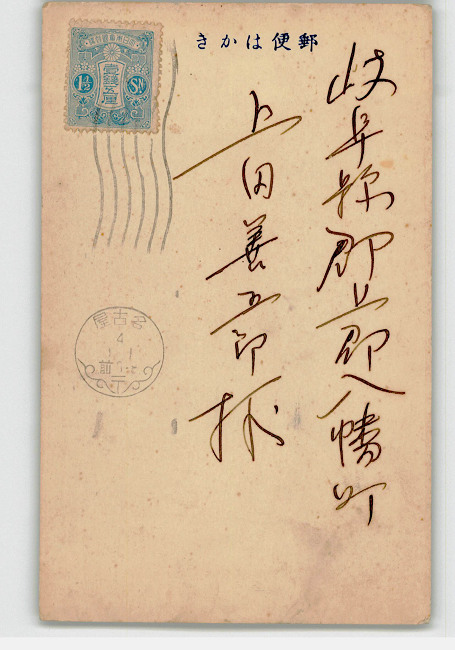 きかは便郵
岐阜縣郡上郡八幡町
上田善五郎様
壹錢五厘
1½ Sn
名古屋
4
1.1
前